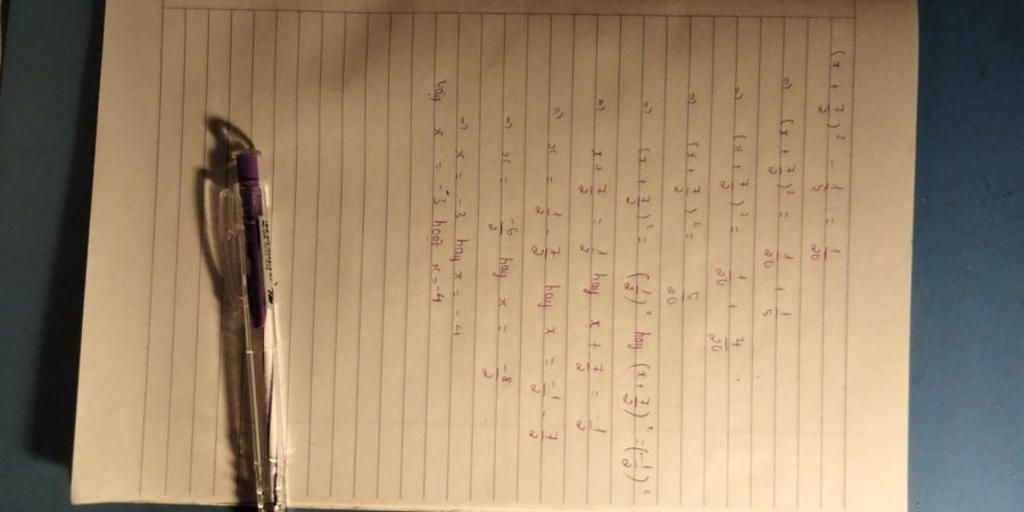 (x + 7/2)² - 1/5 = 1/20
=) (x + 7/2)² = 1/20 + 1/5
=) (x + 7/2)² = 1/20 + 4/20
=) (x + 7/2)² = 5/20
=) (x + 7/2)² = (1/2)² hay (x + 7/2)² = (-1/2)²
=) x + 7/2 = 1/2 hay x + 7/2 = -1/2
=) x = 1/2 - 7/2 hay x = -1/2 - 7/2
=) x = -6/2 hay x = -8/2
=) x = -3 hay x = -4
Vậy x = -3 hoặc x = -4